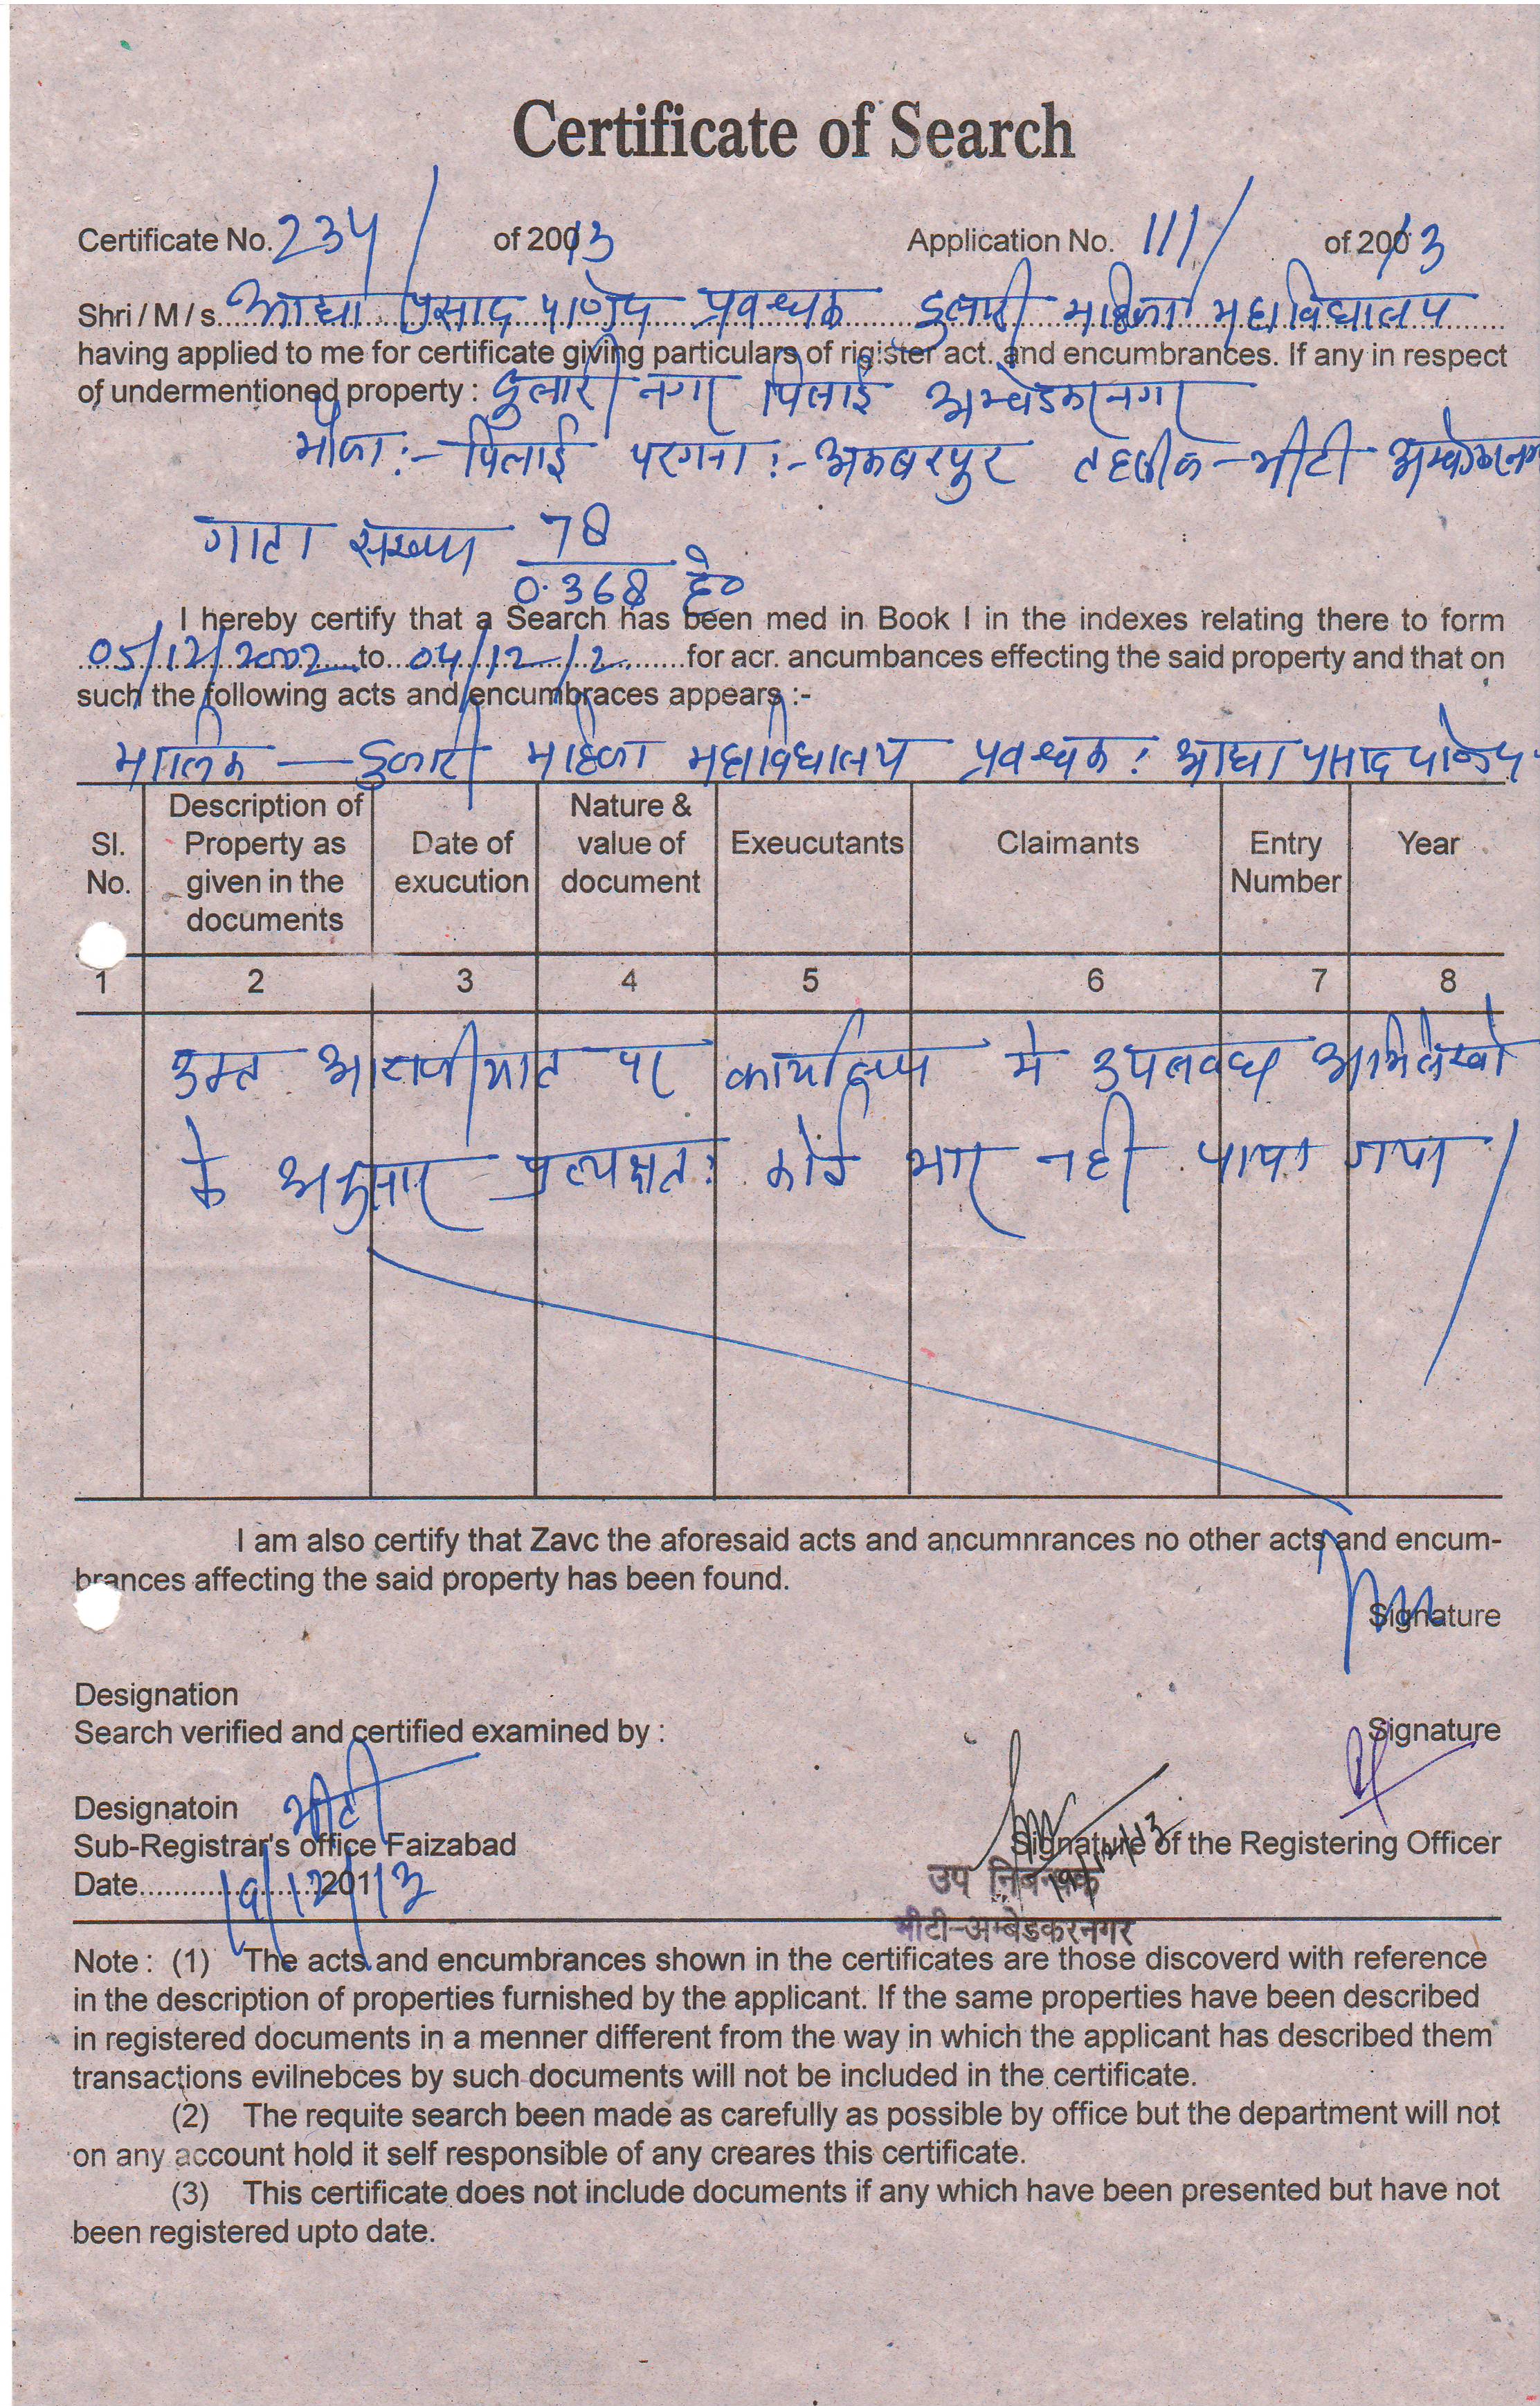 Certificate of Search
Certificate No. 234/ of 2013 Application No. 111/ of 2013
Shri / M / s. आद्या प्रसाद पाण्डेय प्रबन्धक दुलारी महिला महाविद्यालय
having applied to me for certificate giving particulars of rigister act. and encumbrances. If any in respect
of undermentioned property : दुलारी नगर पिलाई अम्बेडकरनगर
मौजा :- पिलाई परगना :- अकबरपुर तहसील - भीटी अम्बेडकरनगर
गाटा संख्या 78
0.368 हे०
I hereby certify that a Search has been med in Book I in the indexes relating there to form
05/12/2002 to 04/12/2 for acr. ancumbances effecting the said property and that on
such the following acts and encumbraces appears :-
मालिक — दुलारी महिला महाविद्यालय प्रवन्धक : आद्या प्रसाद पाण्डेय
Sl. No. Description of Property as given in the documents Date of exucution Nature & value of document Exeucutants Claimants Entry Number Year
1 2 3 4 5 6 7 8
उक्त आराजीयात पर कार्यालय मे उपलवध अभिलेखो
के अनुसार प्रत्यक्षत: कोई भार नही पाया गया
I am also certify that Zavc the aforesaid acts and ancumnrances no other acts and encum-
brances affecting the said property has been found.
Signature
Designation
Search verified and certified examined by :
Signature
Designatoin भीटी
Sub-Registrar's office Faizabad Signature of the Registering Officer
Date 19/12/2013 उप निबन्धक
भीटी-अम्बेडकरनगर
Note : (1) The acts and encumbrances shown in the certificates are those discoverd with reference
in the description of properties furnished by the applicant. If the same properties have been described
in registered documents in a menner different from the way in which the applicant has described them
transactions evilnebces by such documents will not be included in the certificate.
(2) The requite search been made as carefully as possible by office but the department will not
on any account hold it self responsible of any creares this certificate.
(3) This certificate does not include documents if any which have been presented but have not
been registered upto date.